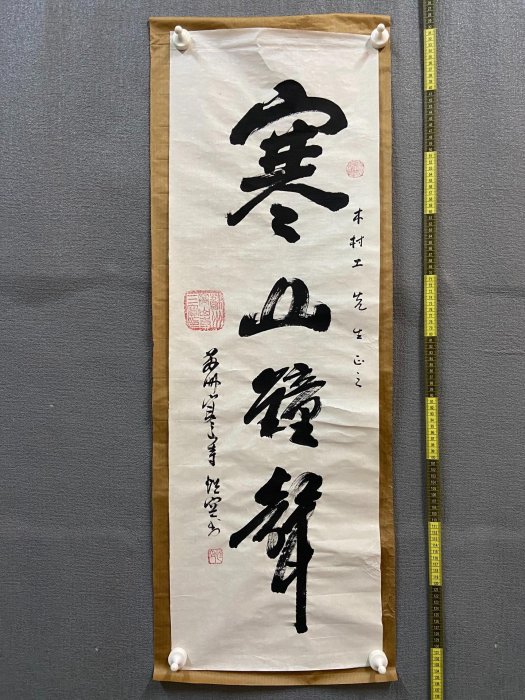 木村工先生正之
寒山鐘聲
苏州寒山寺性空书